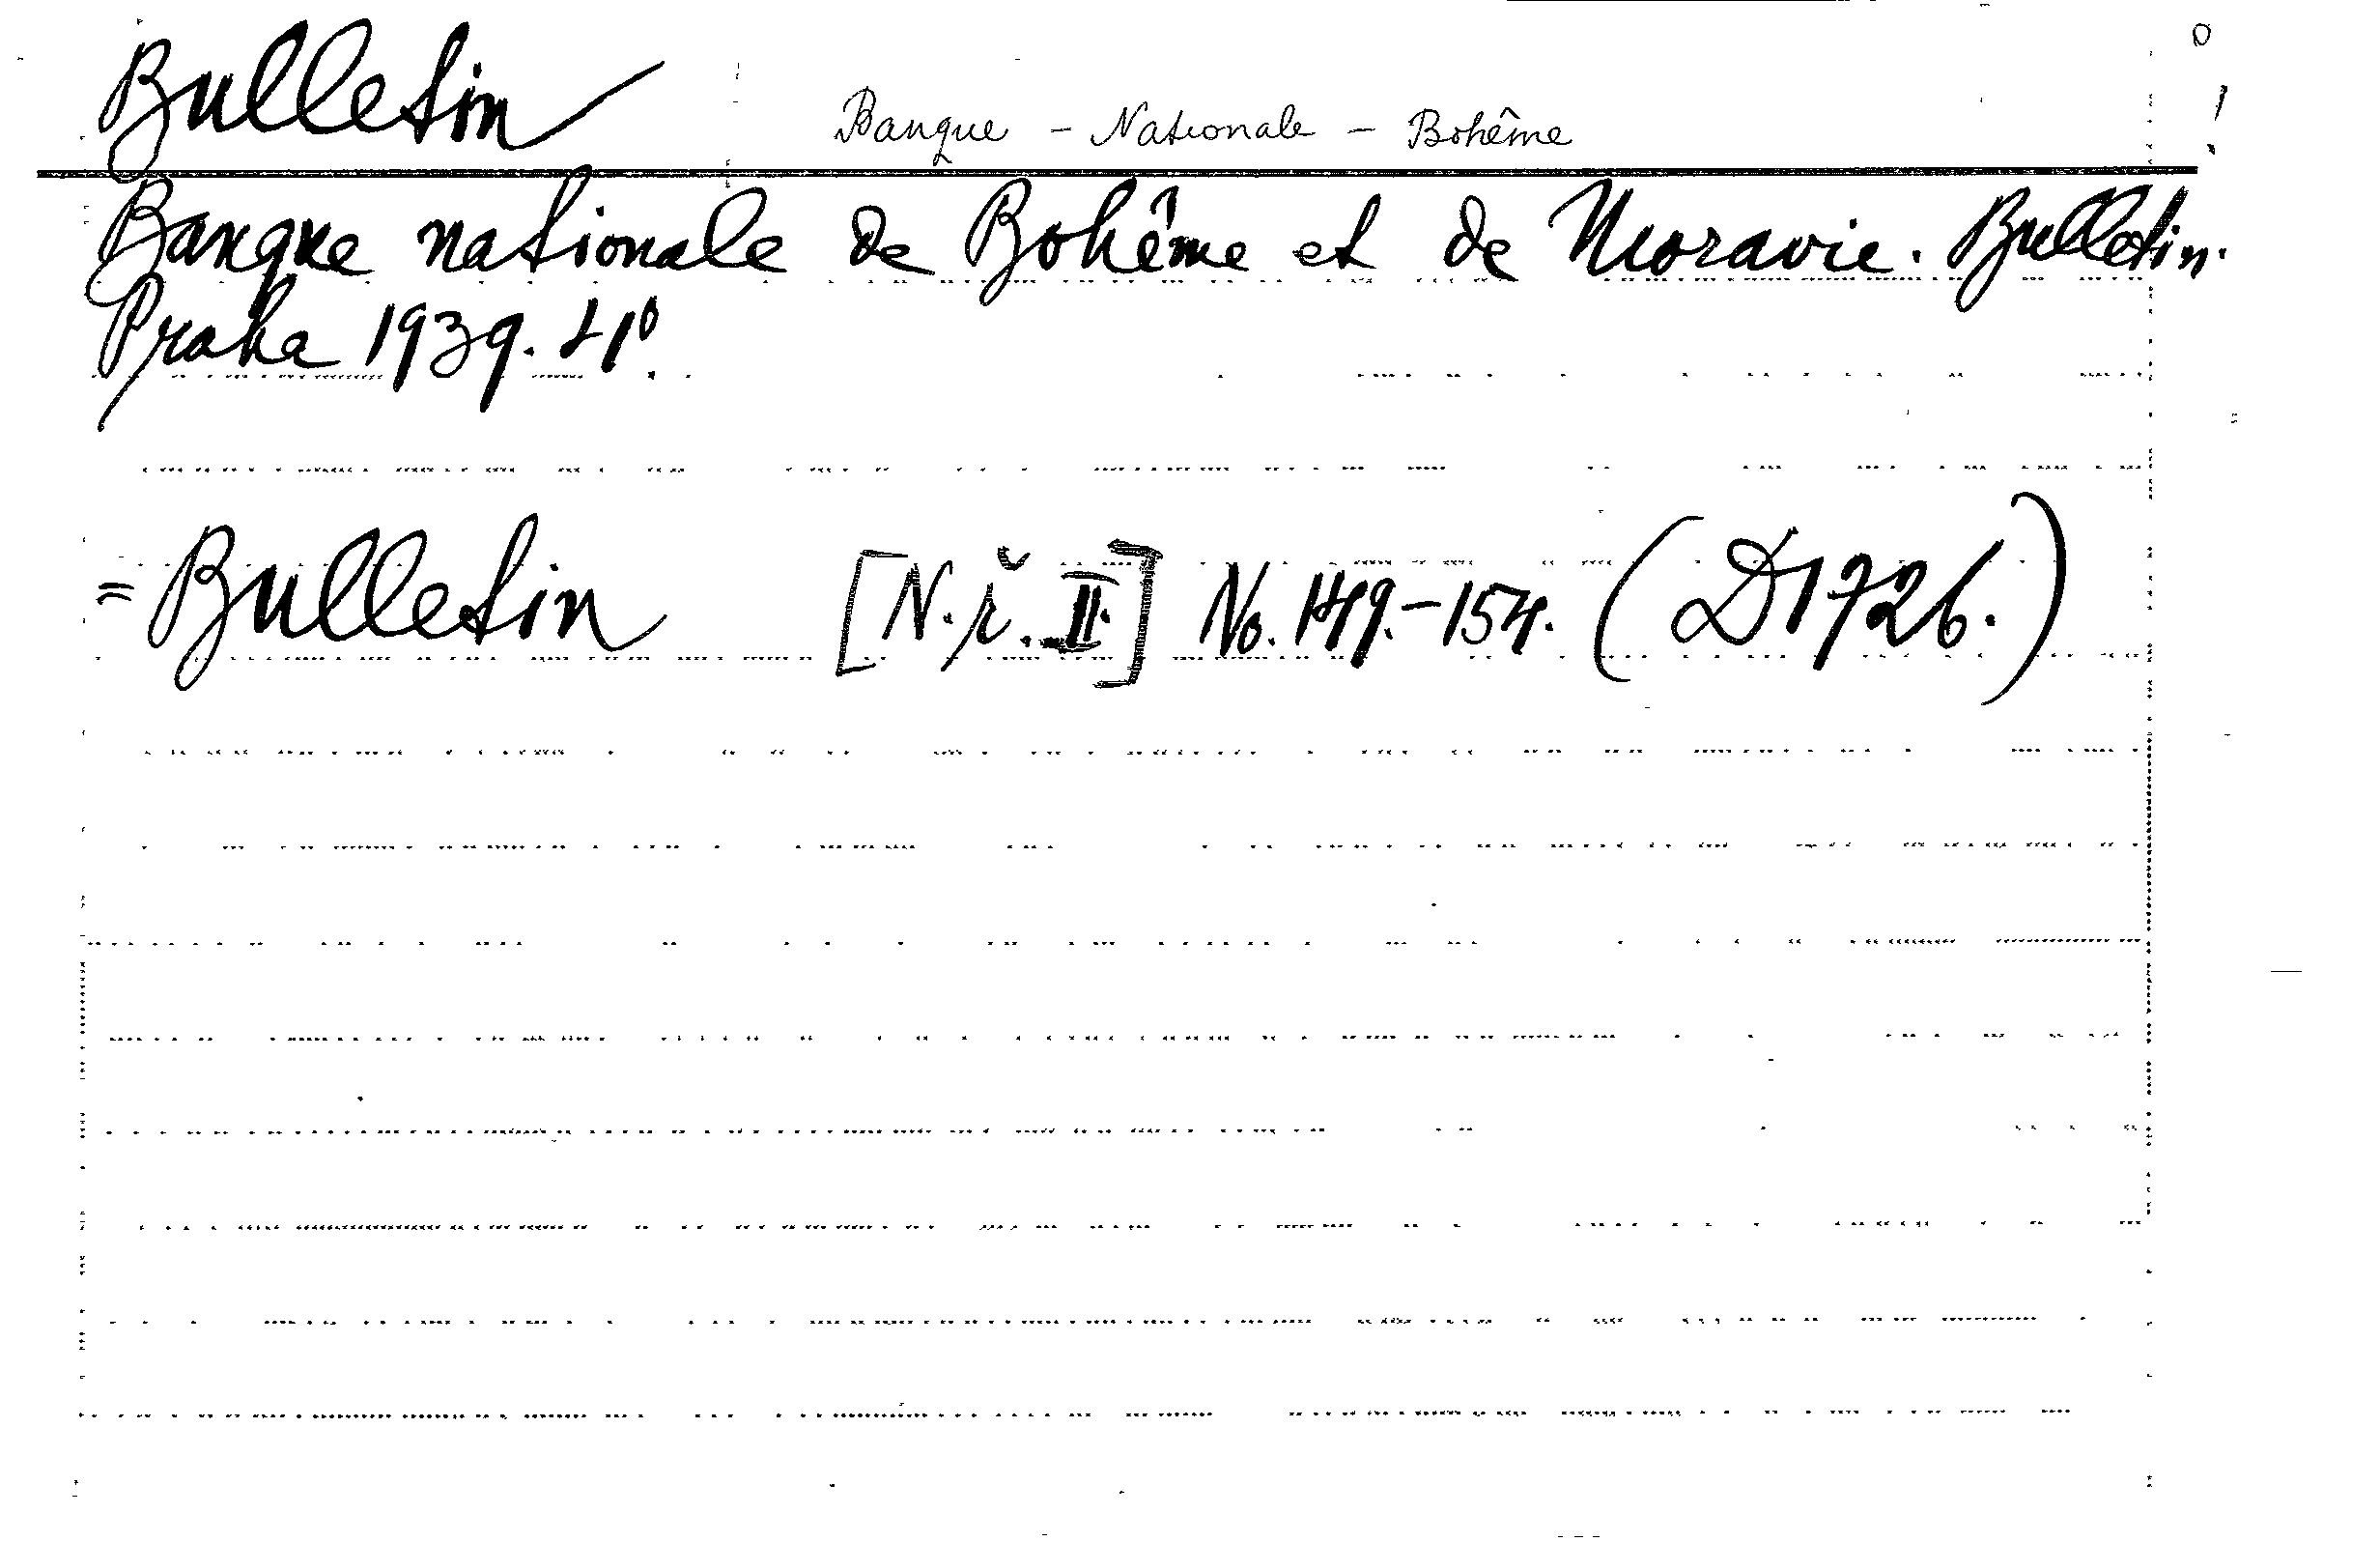 Bulletin Banque - Nationale - Bohême
Banque nationale de Bohême et de Moravie. Bulletin.
Praha 1939. 4°.
= Bulletin [N.ř.II] No. 149.-154. (D1726.)